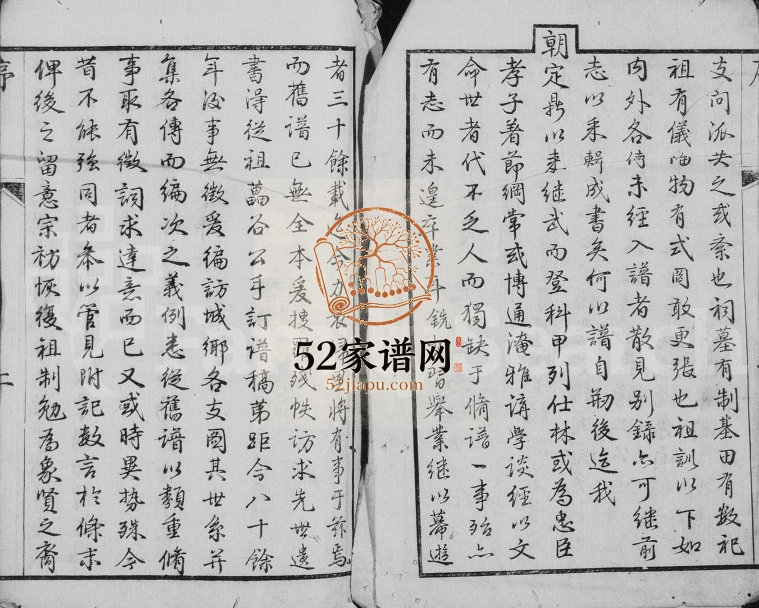 支问派失之或紊也祠墓有制基田有数祀
祖有儀品物有式罔敢更張也祖訓以下如
内外各傳未經入譜者散見别錄亦可继前
志以采輯成書矣何以譜自刱後迄我
朝定鼎以来继武而登科甲列仕林或為忠臣
孝子著節綱常或博通淹雅講學談經以文
命世者代不乏人而獨缺于脩譜一事殆亦
有志而未遑卒業銑習舉業继以幕遊
者三十餘載將有事于茲焉
而舊譜已無全本爰搜残帙访求先世遺
書得從祖藟谷公手訂譜稿第距今八十餘
年没事無徵爰編訪城鄉各支圖其世系并
集各傳而编次之義例悉從舊譜以類重脩
事取有徵詞求達意而已又或時異势殊今
昔不能强同者叅以管見附記数言於條末
俾後之留意宗祊恢復祖制勉為象賢之裔
序
二
52家谱网
52jiapu.com